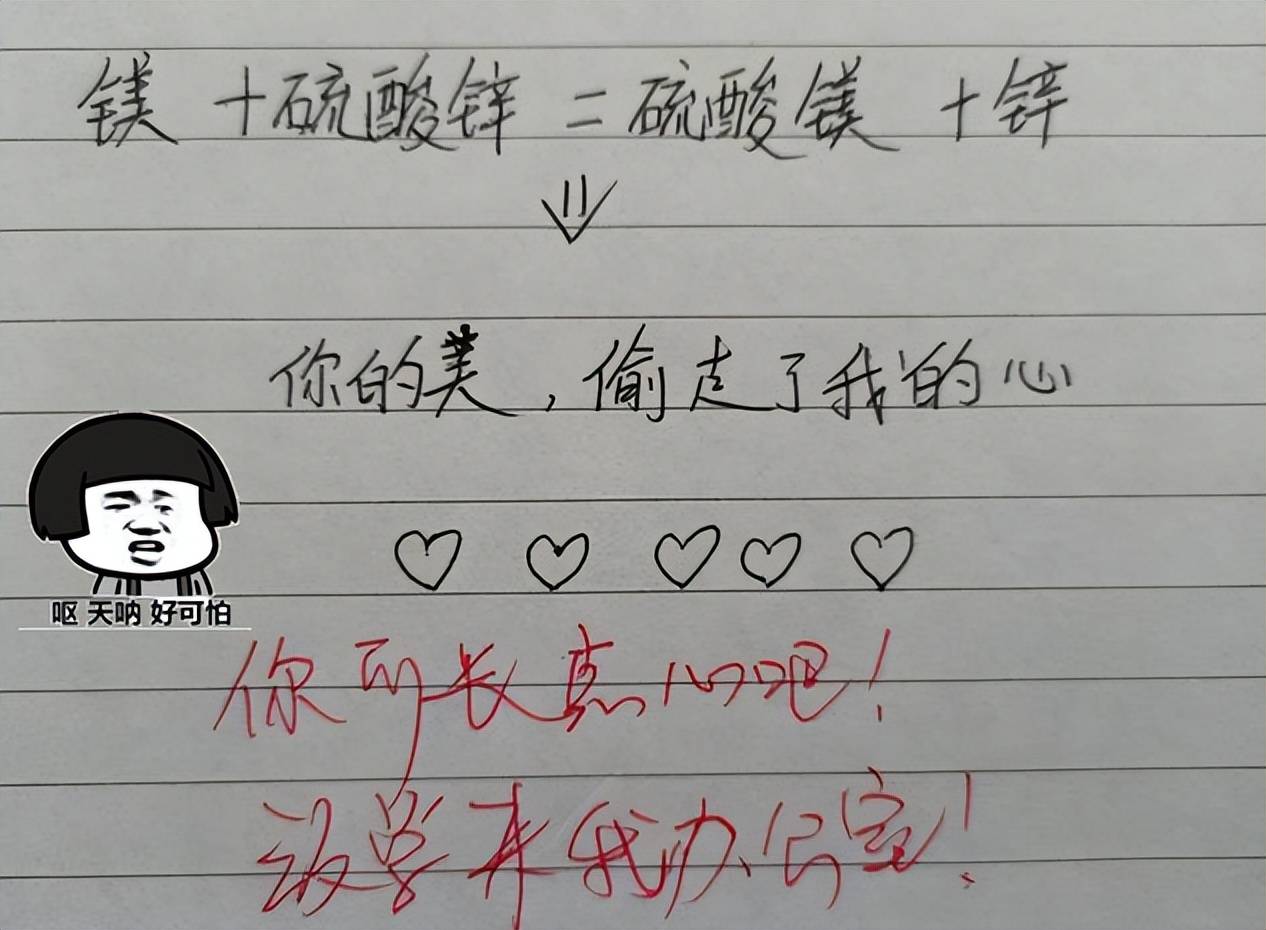 镁+硫酸锌=硫酸镁+锌
你的美,偷走了我的心
呕 天呐 好可怕
你可长点心吧!
放学来我办公室!